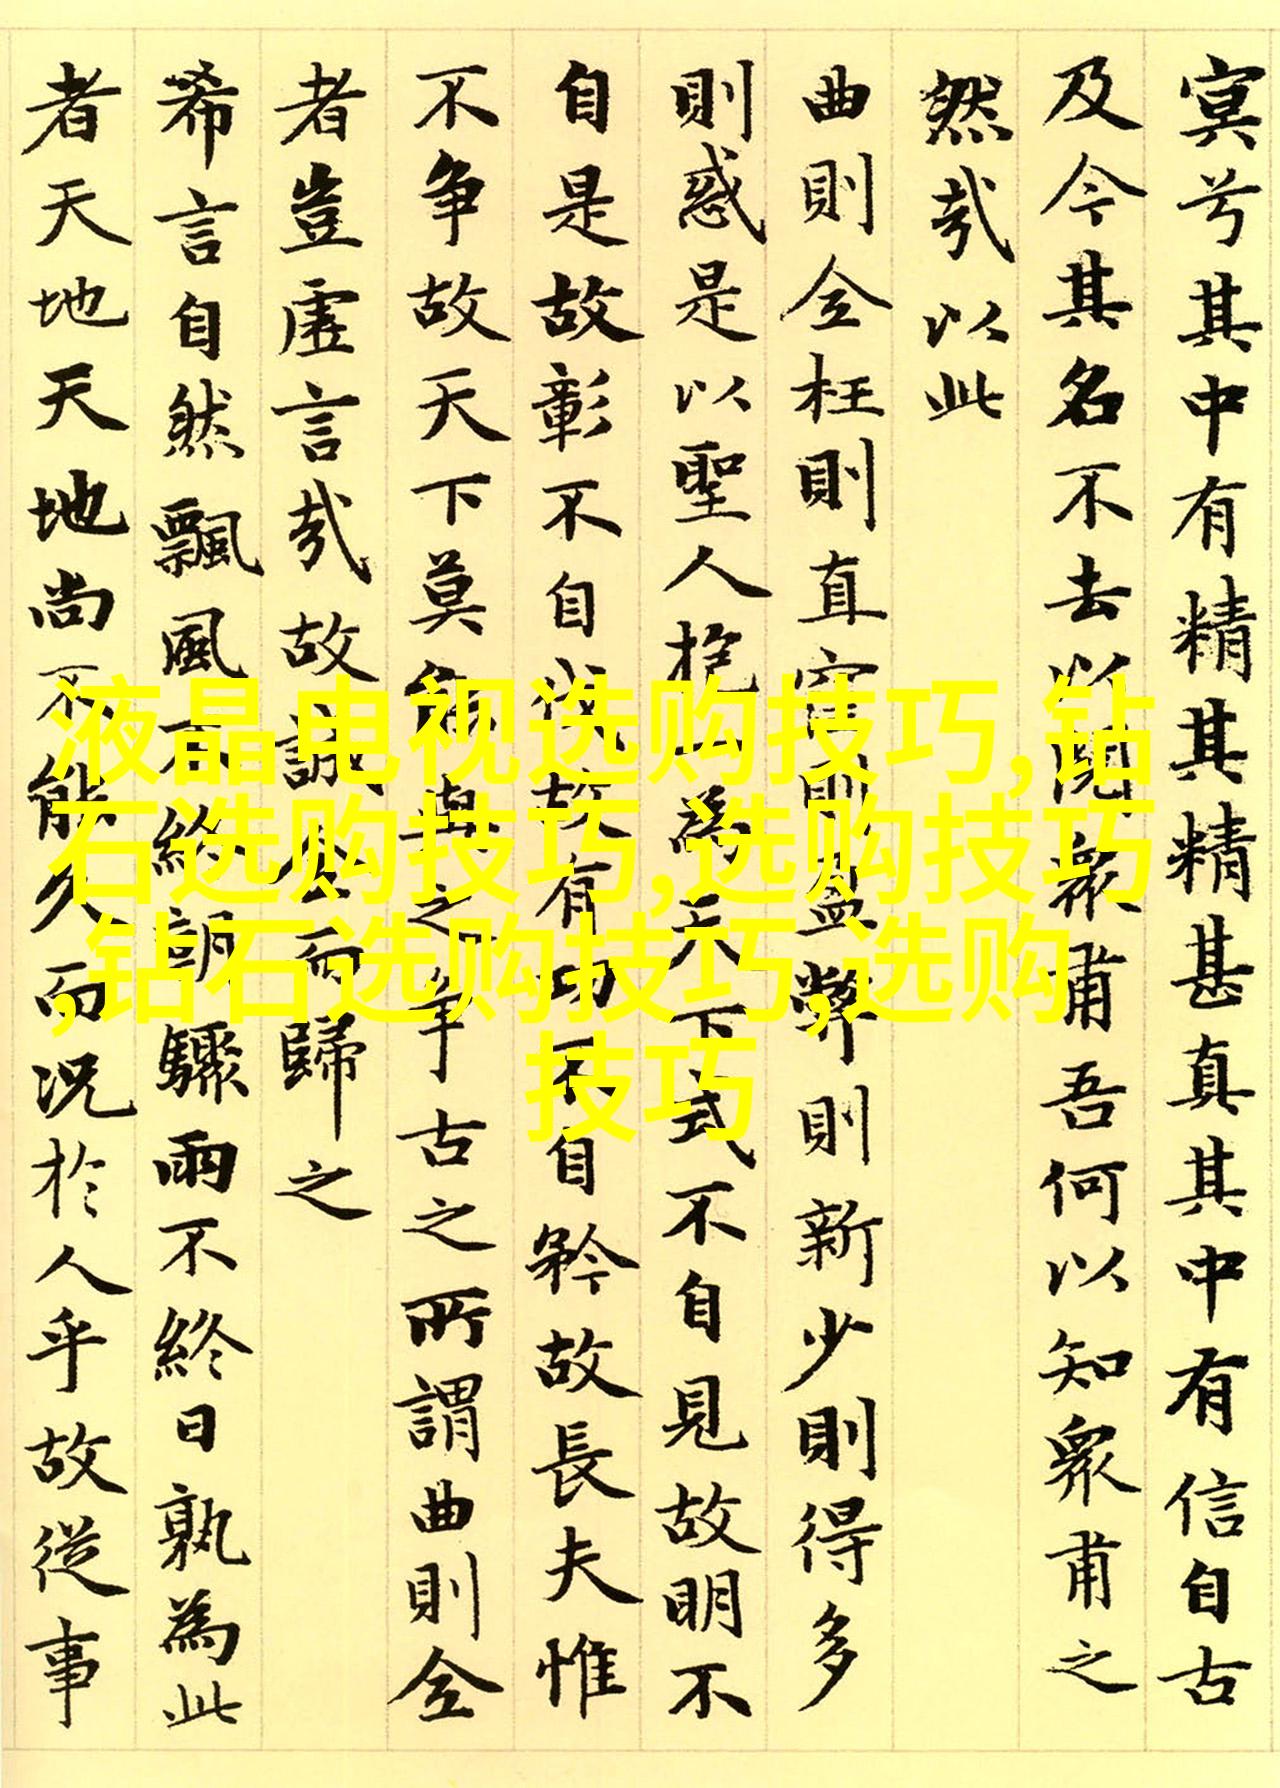 冥兮其中有精其精甚真其中有信自古
及今其名不去以閱衆甫吾何以知衆甫之
然哉以此
曲則全枉則直窪則盈弊則新少則得多
則惑是以聖人抱一為天下式不自見故明不
自是故彰不自伐故有功不自矜故長夫惟
不争故天下莫能與之争古之所謂曲則全
者豈虛言哉故誠全而歸之
希言自然飄風不終朝驟雨不終日孰為此
者天地天地尚不能久而况於人乎故從事
液晶电视选购技巧,钻
石选购技巧,选购技巧
,钻石选购技巧,选购
技巧